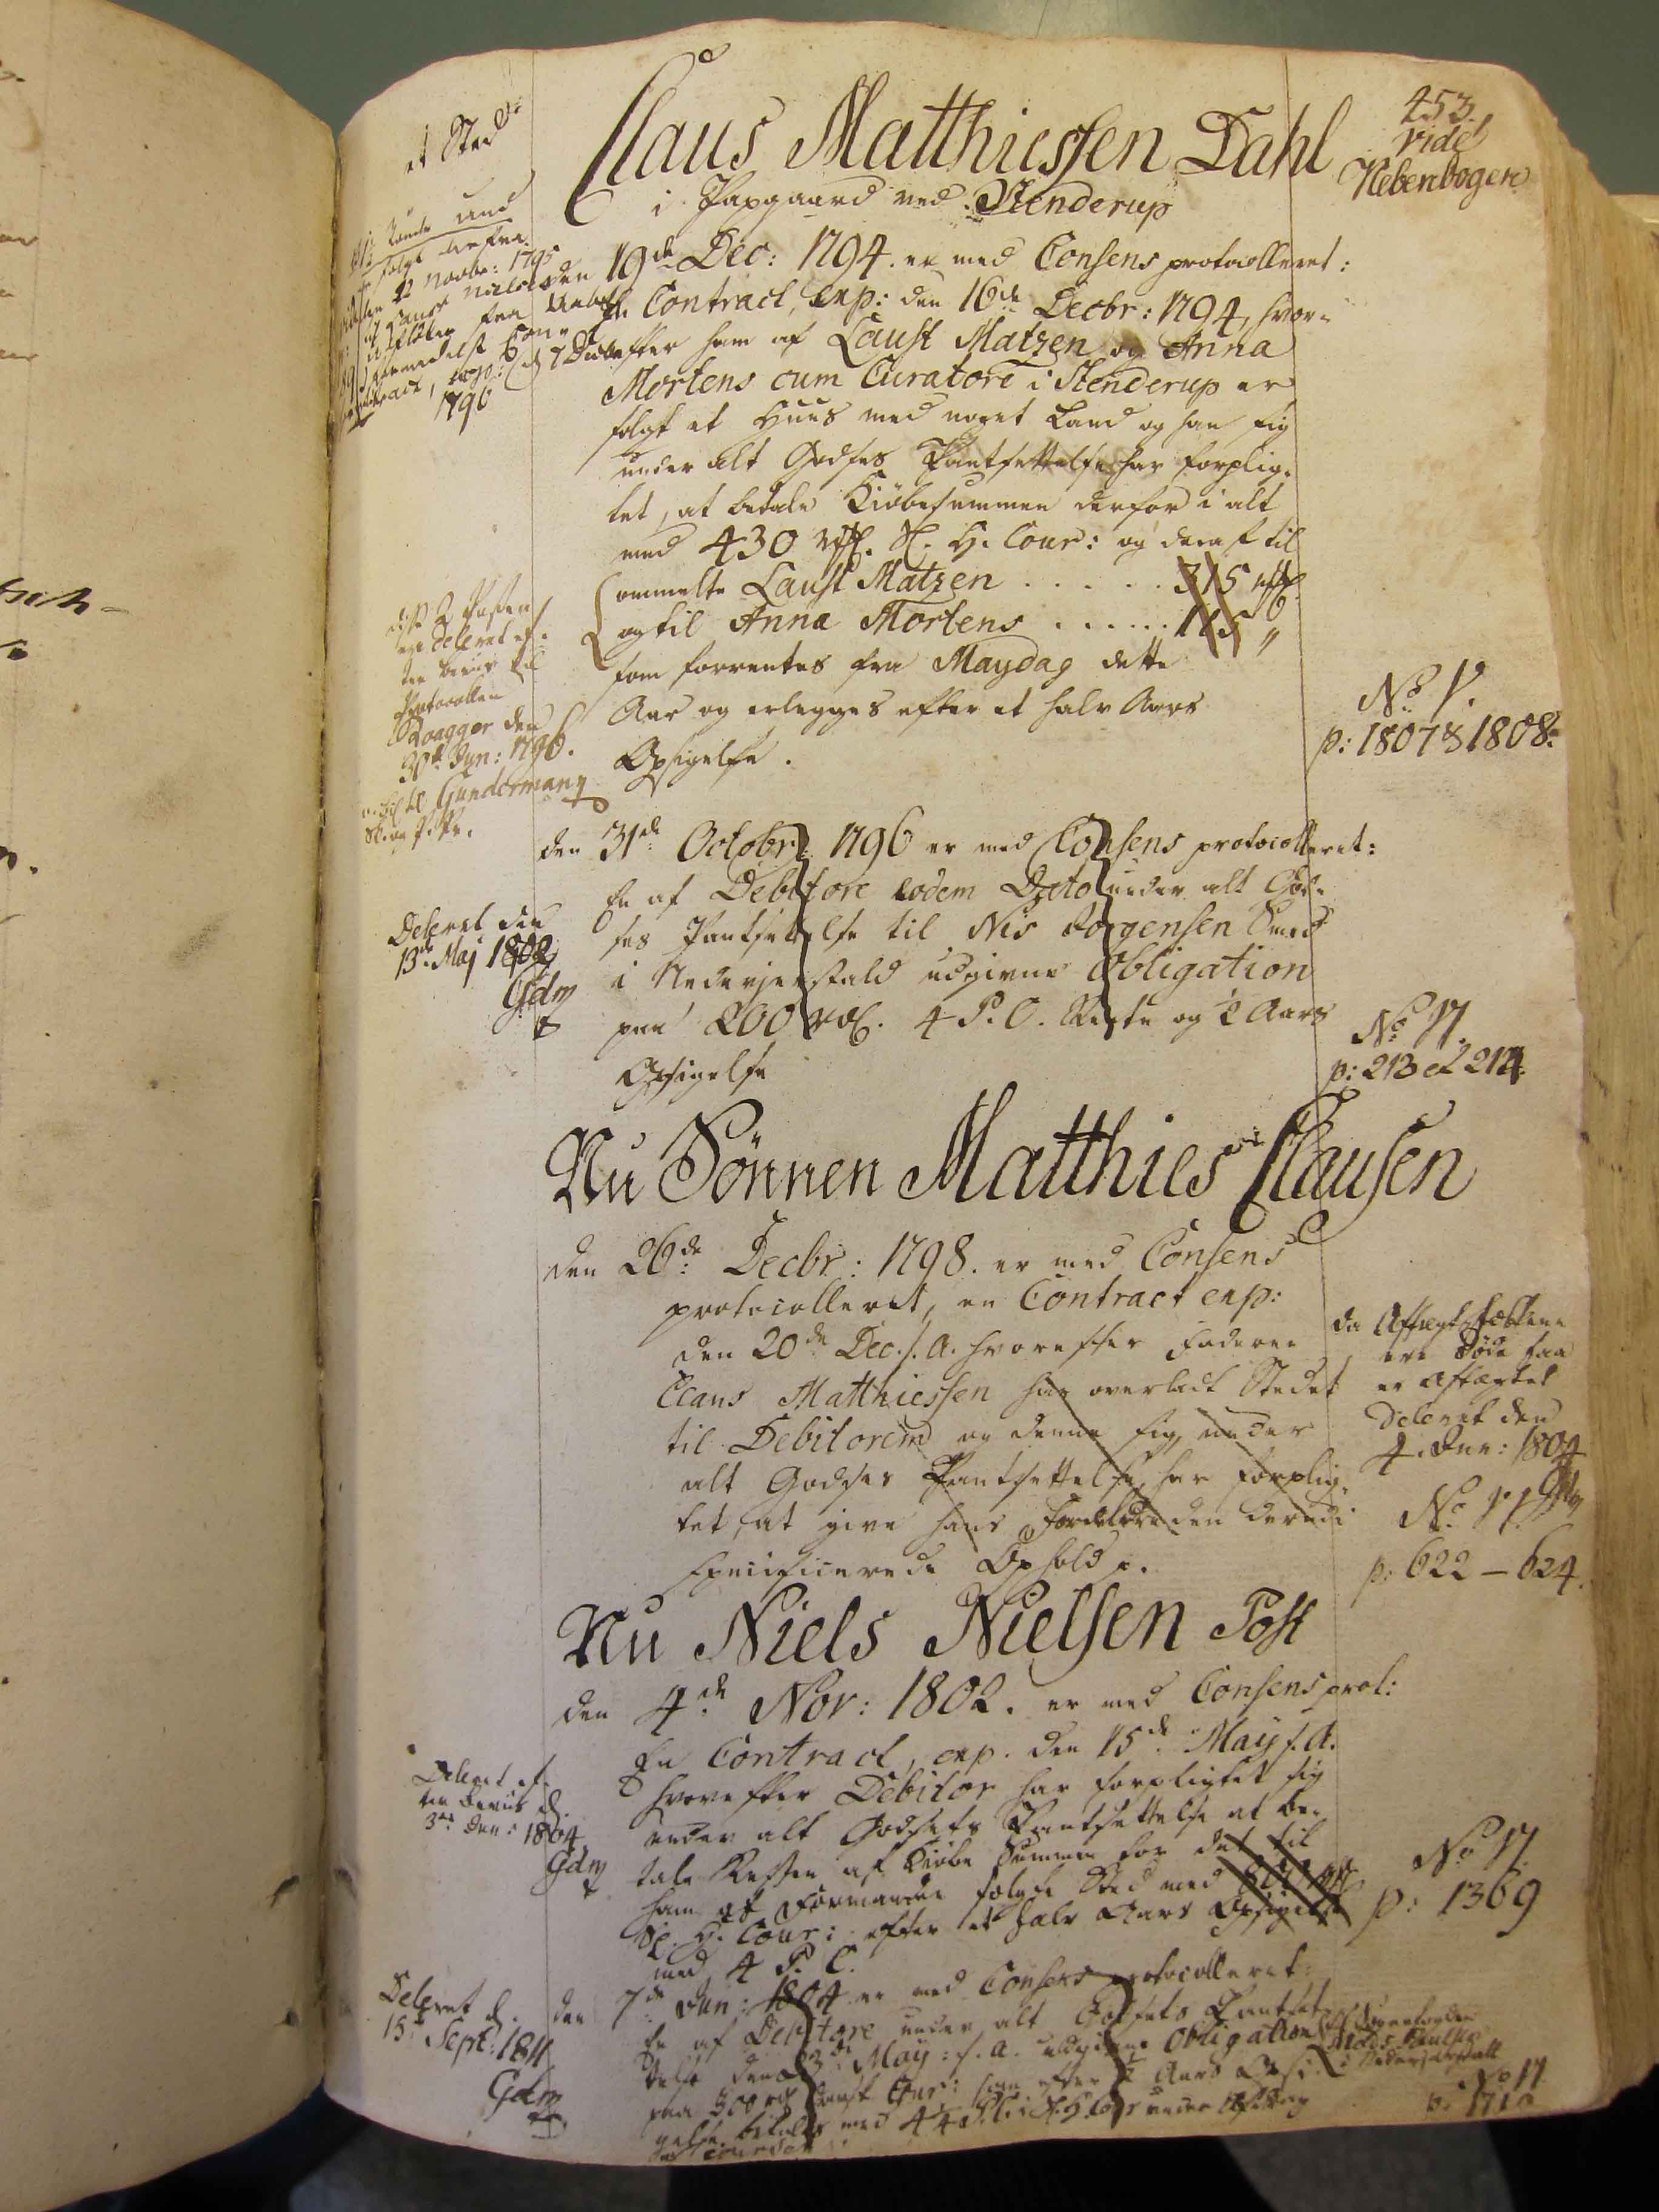 453.
vide
Nebenbogen
et Sted
Claus Matthiessen Dahl
i Papgaard ved Stenderup
den 19de Dec: 1794. er med Consens protocolleret:
En Contract, exp: den 16de Decbr: 1794, hvor-
efter ham af Laust Matzen og Anna
Mortens cum Curatore i Stenderup er
solgt et Huus med noget Land og han sig
under alt Godses Pantsettelse har forplig-
tet, at betale Kiøbesummen derfor i alt
med 430 Sl. H. Cour: og deraf til
ommelte Laust Matzen . . . . . 315
og til Anna Mortens . . . . . . 115 "
som forrentes fra Maydag dette
Aar og erlegges efter et halv Aars
Opsigelse.
No V.
p: 1807 & 1808.
12 Novbr: 1795
1796
disse 2 Poster
ere deleret ef-
ter beviis til
Protocollen
Roagger den
30te Jun: 1796.
Gundermann
den 31de Octobr: 1796 er med Consens protocolleret:
En af Debitore eodem Dato under alt God-
ses Pantsettelse til Nis Jørgensen Smed
i Nederjerstald udgivne Obligation
paa 200 4 P. C. Rente og ½ Aars
Opsigelse
Deleret den
13de Maj 1802
Gdm
No VI.
p: 213 et 214.
Nu Sønnen Matthies Clausen
den 26de Decbr: 1798. er med Consens
protocolleret, en Contract exp:
den 20de Dec. s. A. hvorefter Faderen
Claus Matthiessen har overladt Stedet
til Debitorem og denne sig under
alt Godses Pantsettelse har forplig-
tet, at give hans Forældre den derudi
specificerede Ophold p.
da Aftægtsfolkene
ere døde saa
er Aftægten
deleret den
4 Jun: 1804
Gdm
No VI.
p: 622 – 624.
Nu Niels Nielsen Post
den 4de Nov: 1802. er med Consens prot:
En Contract, exp. den 15de May s. A.
hvorefter Debitor har forpligtet sig
under alt Godsets Pantsettelse at be-
tale Resten af Kiøbe Summen for det til
ham af Formanden solgte Sted med
Sl. H. Cour: efter et halv Aars Opsigelse
med 4 P. C.
Deleret ef-
ter Beviis d.
3de Jun: 1804
Gdm
No VI.
p: 1369
den 7de Jun: 1804 er med Consens protocolleret:
En af Debitore under alt Godsets Pantset-
telse den 3de May: s. a. udgivne Obligation
paa 300 dansk Cour: som efter ½ Aars Opsi-
gelse betales med 4
Mads Paulsen
i Nederjerstall
Deleret d.
15de Sept: 1811
Gdm
No VI
p: 1710